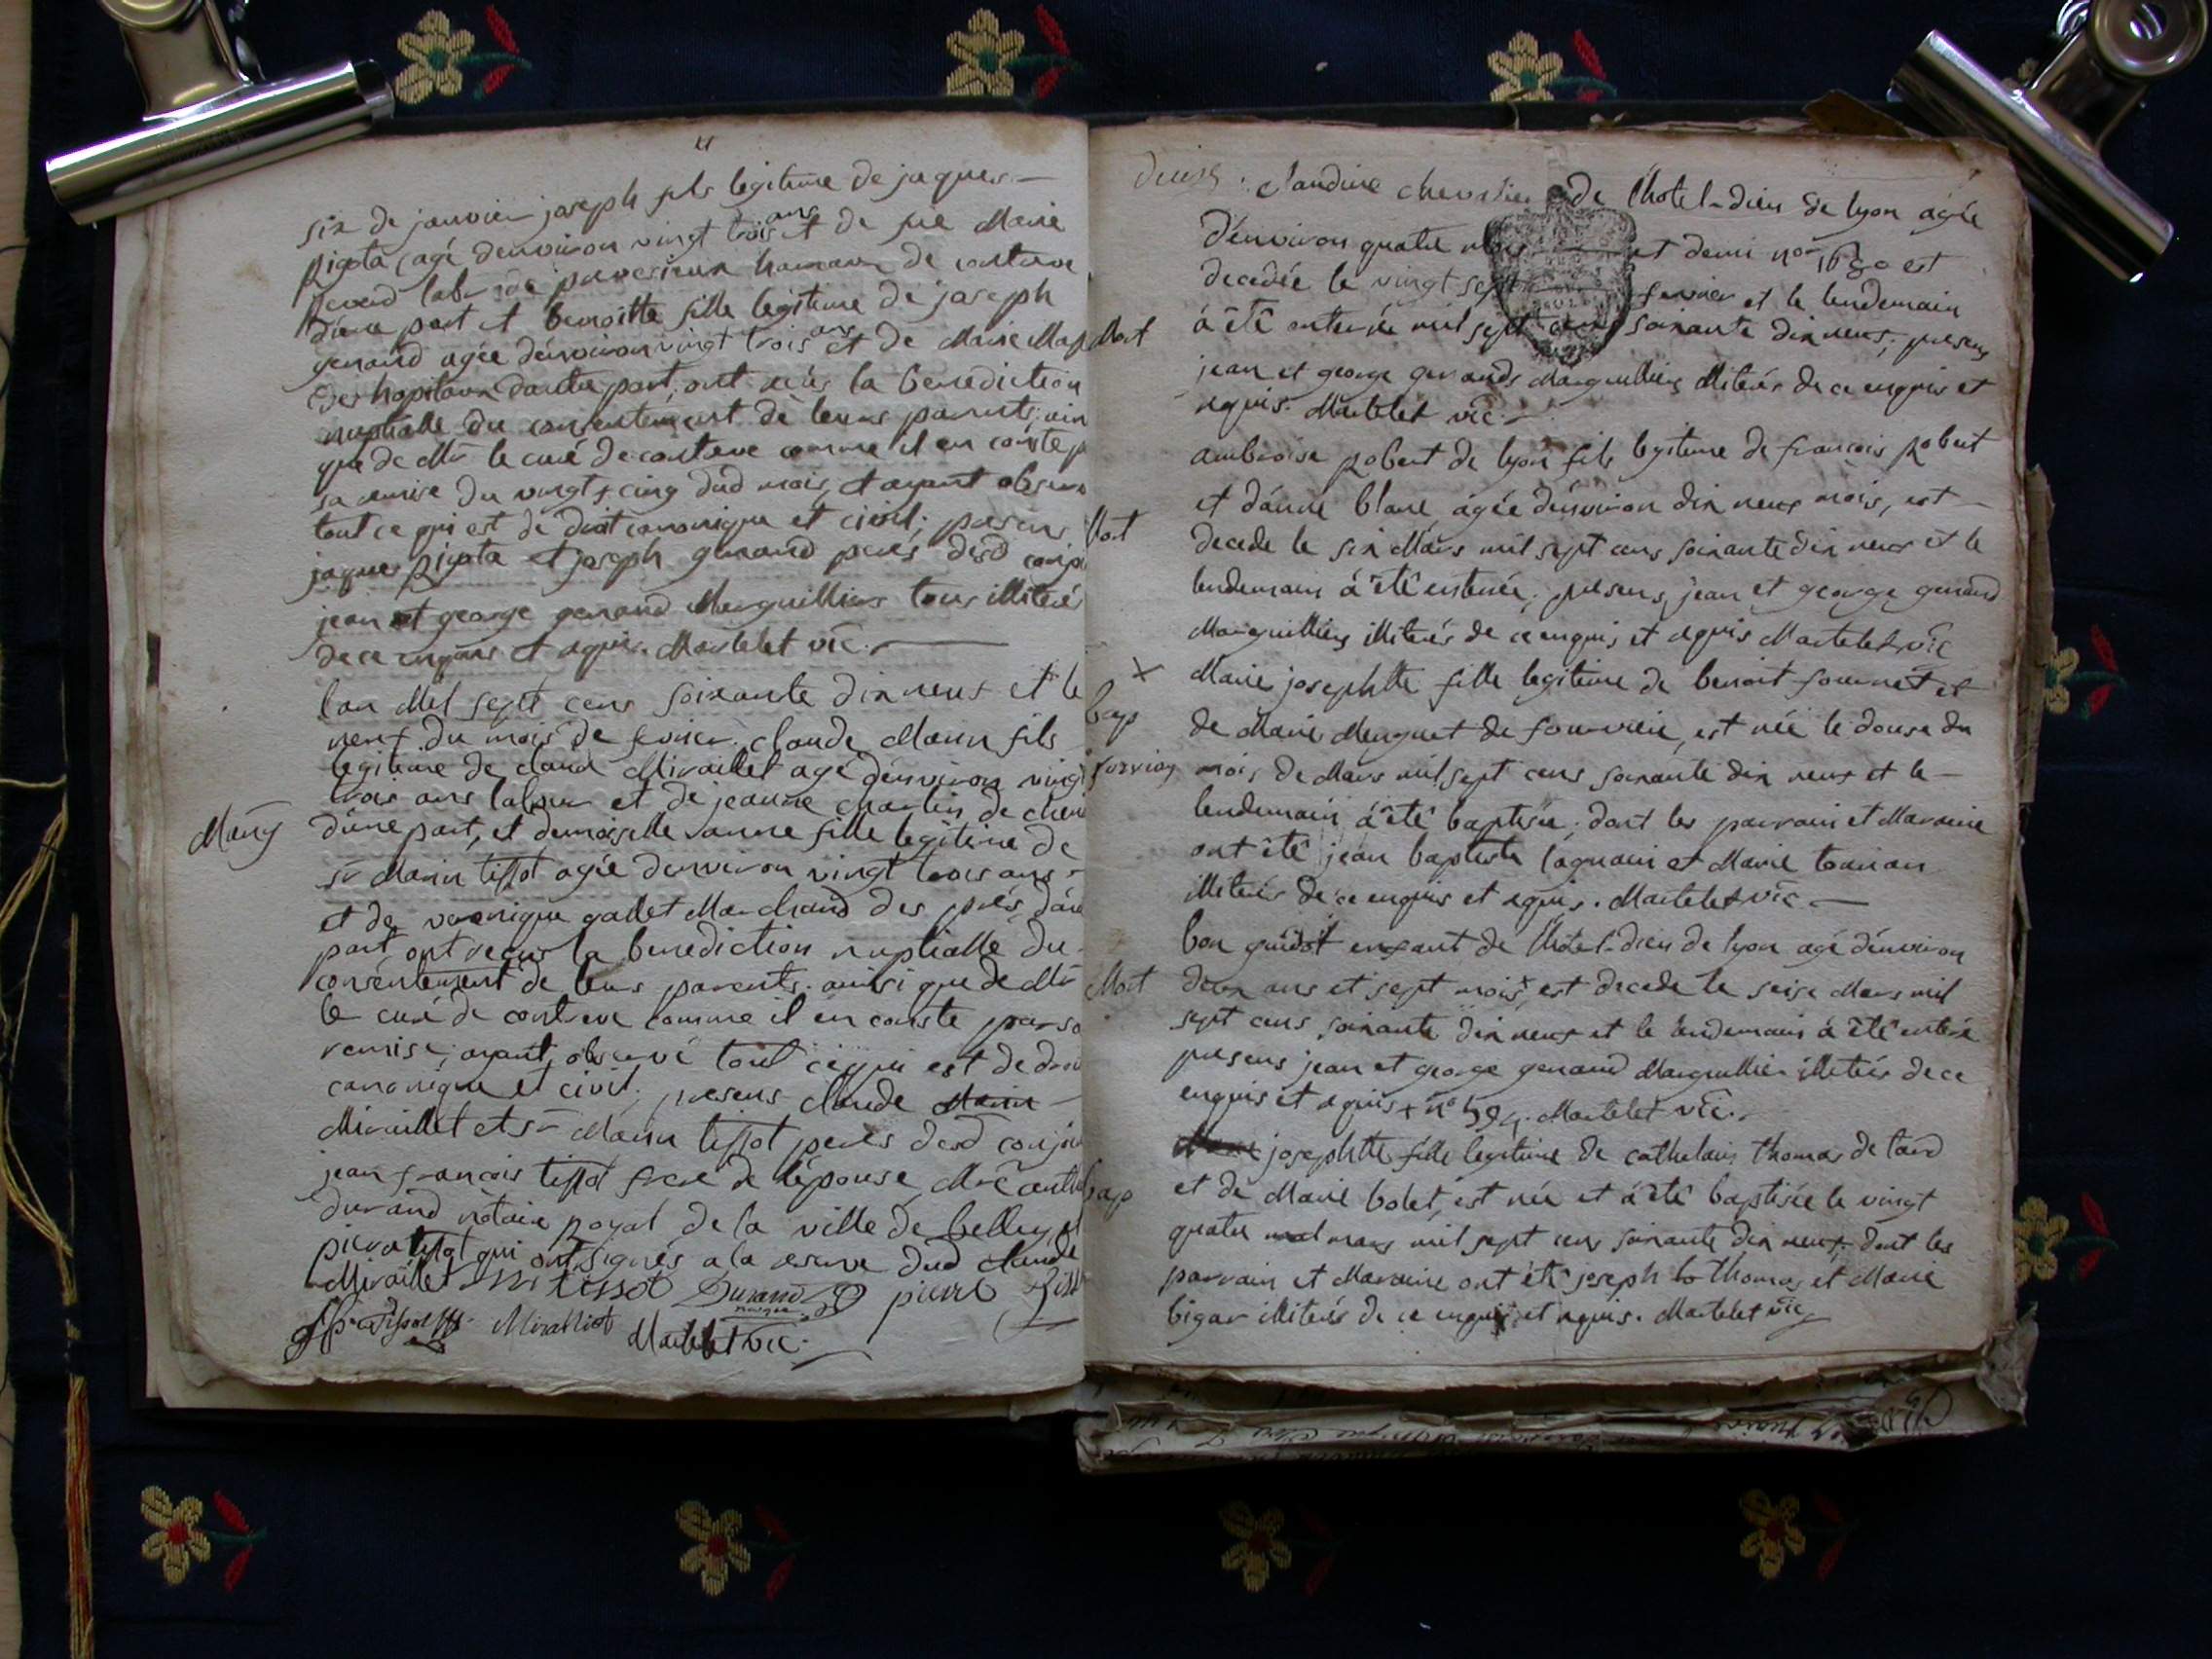 six de janvier joseph fils legitime de jaques
pigota agé denviron vingt trois ans et de feu Marie
de contreve
d'une part et benoitte fille legitime de joseph
genand agée d'environ vingt trois ans et de Marie
des hopitaux dautre part, ont reçus la benediction
nuptialle du consentement de leurs parents, ain
que de Mr le curé de contreve comme il en conste p
sa remise du vingt cinq dud mois, et ayant observ
tout ce qui est de droit canonique et civil; presens
jaques pigota et joseph genand peres desd conjo
jean et george genand Marguilliers tous illiterés
de ce enquis et requis. Martelet vic.
lan Mil sept cens soixante dix neuf et le
neuf du mois de fevrier. claude Marin fils
legitime de claude Miraillet agé d'environ vingt
trois ans labour et de jeanne charlin de
Mariag
d'une part, et demoiselle anne fille legitime de
sr Marin tissot agée denviron vingt trois ans
et de veronique gallet Marchand des prés, dau
part, ont reçus la benediction nuptialle du
consentement de leurs parents. ainsi que de Mr
le curé de contreve comme il en conste par sa
remise; ayant observé tout ce qui est de droit
canonique et civil; presens claude Marin
Miraillet et sr Marin tissot peres desd conjoi
jean francois tissot frere de l'épouse, Mre
durand notaire royal de la ville de belley et
pierre tissot qui ont signés a la reserve dud claude
Miraillet M tissot Durand pierre Tiss
Tissot Miralliet Martelet vic.
claudine chevalier de l'hotel-dieu de lyon agée
d'environ quatre mois et demi no 1680 est
decedée le vingt sept fevrier et le lendemain
Mort
à été enterrée mil sept cens soixante dix neuf; presens
jean et george genands Marguilliers illiterés de ce enquis et
requis. Martelet vic.
ambroise robert de lyon fils legitime de francois robert
et d'anne blanc, agée d'environ dix neuf mois, est
Mort
decede le six Mars mil sept cens soixante dix neuf et le
lendemain à été enterrée; presens, jean et george genand
Marguilliers illiterés de ce enquis et requis Martelet vic
Marie josephtte fille legitime de benoit fournet et
bap
de Marie Menguet de fourvieu, est née le douse du
mois de Mars mil sept cens soixante dix neuf et le
lendemain à été baptisée; dont les parrain et Maraine
ont été jean baptiste et Marie
illiterés de ce enquis et requis. Martelet vic
bon guidot enfant de l'hotel-dieu de lyon agé d'environ
Mort
deux ans et sept mois, est decede le seise Mars mil
sept cens soixante dix neuf et le lendemain à été enterré
presens jean et george genand Marguillier illiterés de ce
enquis et requis + no 594. Martelet vic.
josephtte fille legitime de cathelain thomas de
bap
et de Marie bolet, est née et à été baptisée le vingt
quatre mars mil sept cens soixante dix neuf; dont les
parrain et Maraine ont été joseph thomas et Marie
bigar illiterés de ce enquis et requis. Martelet vic